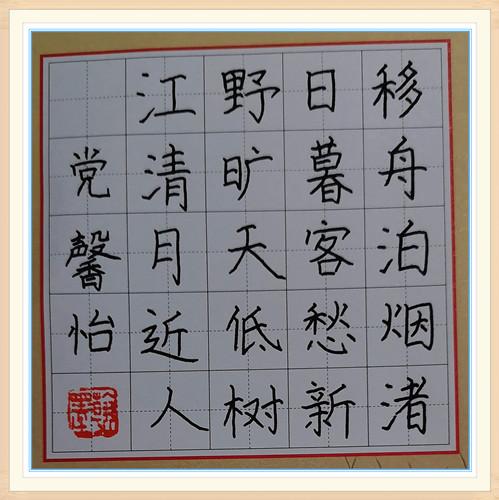 移舟泊烟渚
日暮客愁新
野旷天低树
江清月近人
党馨怡